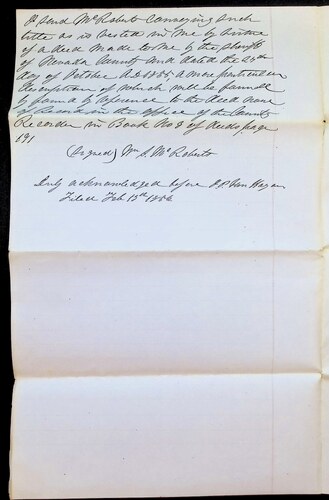 Send McRoberts Conveying such
title as is vested in me by virtue
of a deed made to me by the Sheriff
of Nevada County and dated the 29th
day of October A.D. 1855, a more particular
description of which will be found
by reference to the deed now
of Record in the office of the County
Recorder in Book No 3 of deeds page
191
(Signed) Wm S. McRoberts
Duly acknowledged before J. P. Van Hagan
Filed Feb 13th 1856